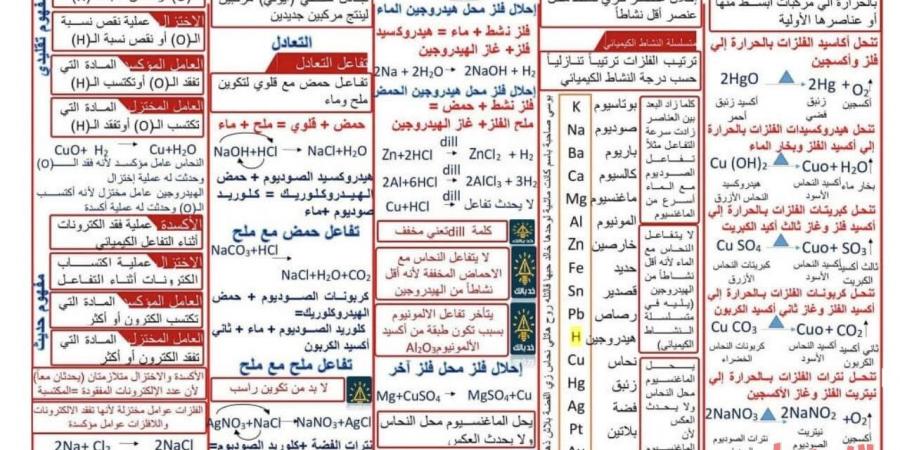 بالحرارة إلى مركبات أبسط منها
أو عناصرها الأولية
تنحل أكاسيد الفلزات بالحرارة إلي
فلز وأكسجين
2HgO 2Hg + O2
أكسيد زئبق
أحمر
زئبق
فضي
أكسجين
تنحل هيدروكسيدات الفلزات بالحرارة
إلي أكسيد الفلز وبخار الماء
Cu (OH)2 Cuo+ H2O
هيدروكسيد
النحاس
الأزرق
أكسيد النحاس
الأسود
بخار ماء
تنحل كبريتات الفلزات بالحرارة إلي
أكسيد الفلز وغاز ثالث أكيد الكبريت
Cu SO4 Cuo+ SO3
كبريتات النحاس
الزرقاء
أكسيد النحاس
الأسود
ثالث أكسيد
الكبريت
تنحل كربونات الفلزات بالحرارة إلي
أكسيد الفلز وغاز ثاني أكسيد الكربون
Cu CO3 Cuo + CO2
كربونات النحاس
الخضراء
أكسيد النحاس
الأسود
ثاني أكسيد
الكربون
تنحل نترات الفلزات بالحرارة إلي
نيتريت الفلز وغاز الأكسجين
2NaNO3 2NaNO2 +O2
نترات الصوديوم
نيتريت
الصوديوم
أكسجين
عنصر أقل نشاطاً
متسلسلة النشاط الكيميائي
ترتيب الفلزات ترتيباً تنازلياً
حسب درجة النشاط الكيميائي
K بوتاسيوم
Na صوديوم
Ba باريوم
Ca كالسيوم
Mg ماغنسيوم
Al الومنيوم
Zn خارصين
Fe حديد
Sn قصدير
Pb رصاص
H هيدروجين
Cu نحاس
Hg زئبق
Ag فضة
Pt بلاتين
Au
كلما زاد البعد
بين العناصر
زادت سرعة
التفاعل مثلاً
تفاعل
الصوديوم
مع الماء
أسرع من
الماغنسيوم
لا يتفاعل
النحاس مع
الماء لأنه أقل
نشاطاً من
الهيدروجين
(يليه في
متسلسلة
النشاط
الكيميائي)
يحل
الماغنسيوم
محل النحاس
ولا يحدث
العكس
إحلال فلز محل هيدروجين الماء
فلز نشط + ماء = هيدروكسيد
فلز+ غاز الهيدروجين
2Na + 2H2O 2NaOH + H2
إحلال فلز محل هيدروجين الحمض
فلز نشط + حمض =
ملح الفلز+ غاز الهيدروجين
dill
Zn+2HCl ZnCl2 + H2
dill
2Al+6HCl 2AlCl3 + 3H2
Cu+HCl لا يحدث تفاعل
كلمة dill تعني مخفف
خد بالك
لا يتفاعل النحاس مع
الاحماض المخففة لأنه أقل
نشاطاً من الهيدروجين
خد بالك
يتأخر تفاعل الالومنيوم
بسبب تكون طبقة من أكسيد
الألومنيوم Al2O3
خد بالك
إحلال فلز محل فلز آخر
Mg+CuSO4 MgSO4+Cu
يحل الماغنسيوم محل النحاس
ولا يحدث العكس
لينتج مركبين جديدين
التعادل
تفاعل التعادل
تفاعل حمض مع قلوي لتكوين
ملح وماء
حمض + قلوي = ملح + ماء
NaOH+HCl NaCl+H2O
هيدروكسيد الصوديوم + حمض
الهيدروكلوريك = كلوريد
صوديوم +ماء
تفاعل حمض مع ملح
NaCO3+HCl
NaCl+H2O+CO2
كربونات الصوديوم + حمض
الهيدروكلوريك=
كلوريد صوديوم + ماء + ثاني
أكسيد الكربون
تفاعل ملح مع ملح
لا بد من تكوين راسب
خد بالك
AgNO3+NaCl NaNO3+AgCl
نترات الفضة +كلوريد الصوديوم=
مفهوم تقليدي
الاختزال عملية نقص نسبة
الـ(O) أو نقص نسبة الـ(H)
العامل المؤكسد المادة التي
تفقد الـ(O) أوتكتسب الـ(H)
العامل المختزل المادة التي
تكتسب الـ(O) أوتفقد الـ(H)
CuO+ H2 Cu+H2O
النحاس عامل مؤكسد لأنه فقد الـ(O)
وحدثت له عملية إختزال
الهيدروجين عامل مختزل لأنه أكتسب
الـ(O) وحدثت له عملية أكسدة
مفهوم حديث
الأكسدة عملية فقد الكترونات
أثناء التفاعل الكيميائي
الاختزال عملية اكتساب
الكترونات أثناء التفاعل
العامل المؤكسد المادة التي
تكتسب الكترون أو أكثر
العامل المختزل المادة التي
تفقد الكترون أو أكثر
الأكسدة والاختزال متلازمتان (يحدثان معاً)
لأن عدد الإلكترونات المفقودة =المكتسبة
الفلزات عوامل مختزلة لأنها تفقد الالكترونات
واللافلزات عوامل مؤكسدة
2Na+ Cl2 2NaCl